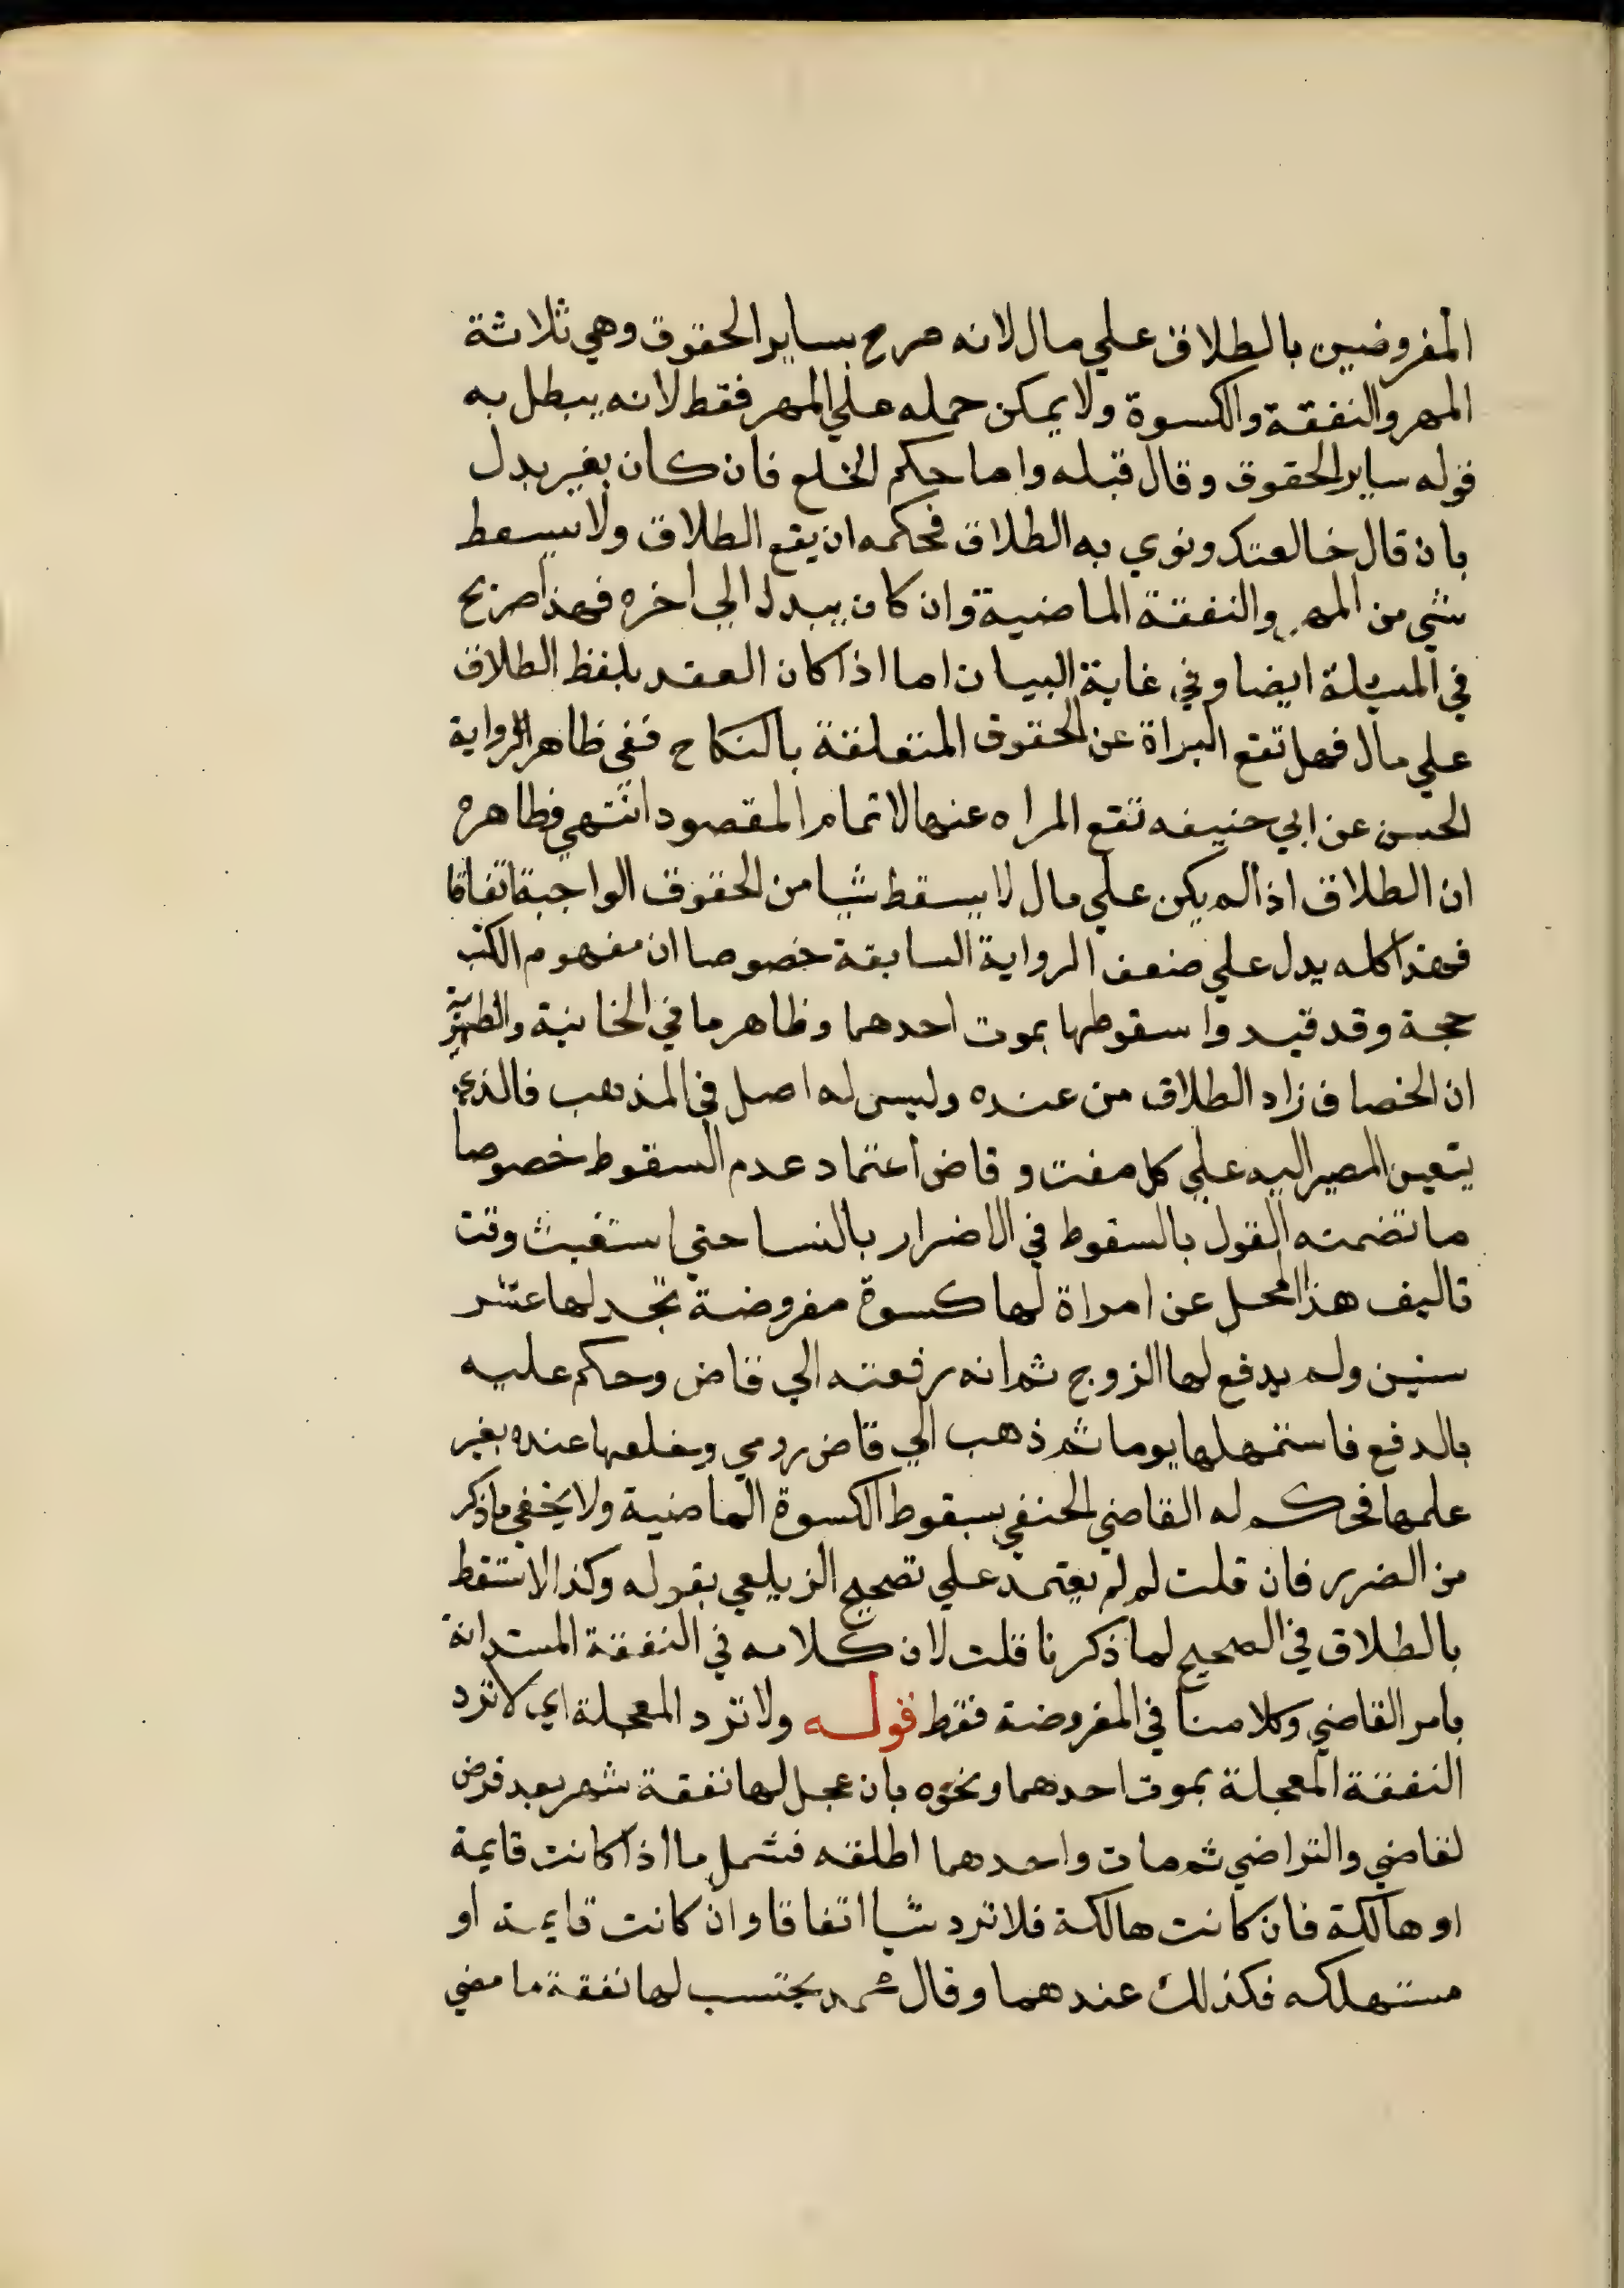 المفروضين بالطلاق علي مال لانه صرح بساير الحقوق وهي ثلاثة
المهر والنفقة والكسوة ولا يمكن حمله علي المهر فقط لانه يبطل به
قوله ساير الحقوق وقال قبله واما حكم الخلع فان كان بغير بدل
بان قال خالعتك ونوي به الطلاق فحكمه ان يقع الطلاق ولا يسقط
شي من المهر والنفقة الماضية وان كان ببدل الي اخره فهذا صريح
في المسئلة ايضا وفي غاية البيان اما اذا كان العقد بلفظ الطلاق
علي مال فهل تقع البراة عن الحقوق المتعلقة بالنكاح ففي ظاهر الرواية
الحسن عن ابي حنيفه تقع المراه عنها لاتمام المقصود انتهي فظاهره
ان الطلاق اذا لم يكن علي مال لا يسقط شيا من الحقوق الواجبة اتفاقا
فهذا كله يدل علي ضعف الرواية السابقة خصوصا ان مفهوم الكتب
حجة وقد قيدوا سقوطها بموت احدهما وظاهر ما في الخانية والظهيرية
ان الخصاف زاد الطلاق من عنده وليس له اصل في المذهب فالذي
يتعين المصير اليه علي كل مفت وقاض اعتماد عدم السقوط خصوصا
ما تضمنه القول بالسقوط في الاضرار بالنسا حتي استفتيت وقت
تاليف هذا المحل عن امراة لها كسوة مفروضة تجد لها عشر
سنين ولم يدفع لها الزوج ثم انه رفعته الي قاض وحكم عليه
بالدفع فاستمهلها يوما ثم ذهب الي قاض رومي وخلعها عنده بغير
علمها فحكم له القاضي الحنفي بسقوط الكسوة الماضية ولا يخفي ما ذكر
من الضرر فان قلت لم لم يعتمد علي تصحيح الزيلعي بقوله وكذا لا تسقط
بالطلاق في الصحيح لما ذكرنا قلت لان كلامه في النفقة المستدانة
بامر القاضي وكلامنا في المفروضة فقط قوله ولا ترد المعجلة اي لا ترد
النفقة المعجلة بموت احدهما ونحوه بان عجل لها نفقة شهر بعد فرض
لقاضي والتراضي ثم مات واحدهما اطلقه فشمل ما اذا كانت قايمة
او هالكة فان كانت هالكة فلا ترد شيا اتفاقا وان كانت قايمة او
مستهلكه فكذلك عندهما وقال محمد يحتسب لها نفقة ما مضي